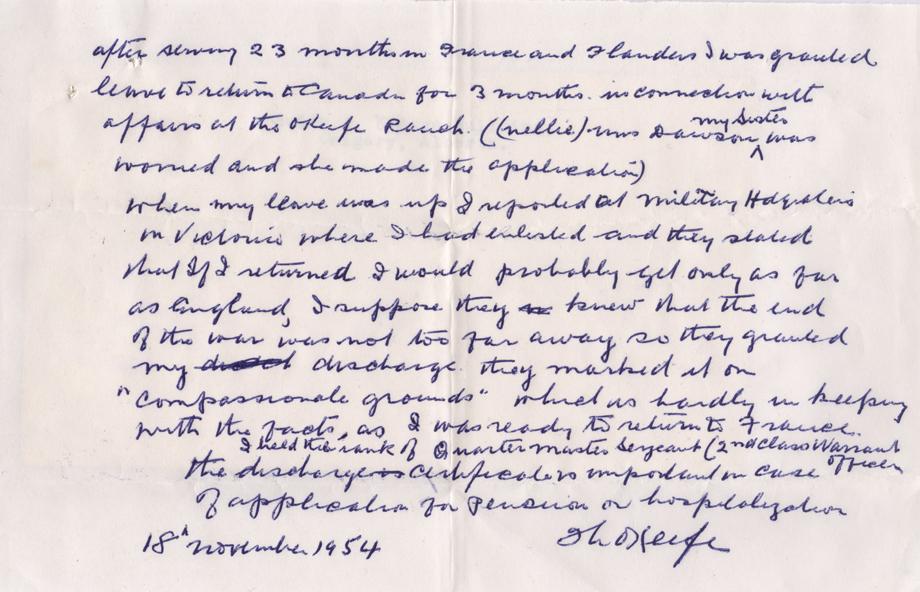 after serving 23 months in France and Flanders I was granted
leave to return to Canada for 3 months. in connection with
affairs at the OKeefe Ranch. ((Nellie) Mrs Dawson, my Sister was
worried and she made the application)
When my leave was up I reported at Military Hdquaters
in Victoria where I had enlisted and they stated
that If I returned I would probably get only as far
as England, I suppose they knew that the end
of the war was not too far away so they granted
my discharge. they marked it on
"Compassionate grounds" which is hardly in keeping
with the facts, as I was ready to return to France.
I held the rank of Quarter Master Sergeant (2nd Class Warrant Officer
the discharge certificate is important in case
of application for Pension or hospitalization
18th November 1954
OKeefe